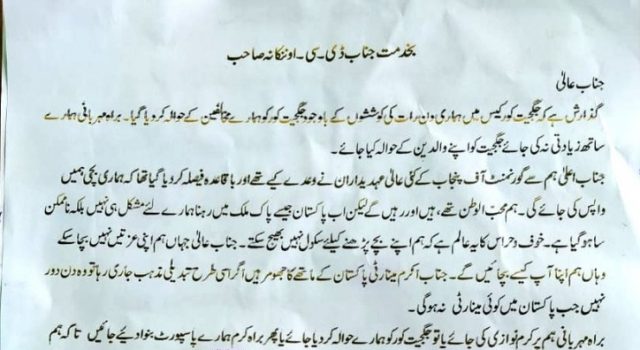 بخدمت جناب ڈی ۔ سی ۔ او ننکانہ صاحب
جناب عالیٰ
گذارش ہے کہ جگجیت کور کیس میں ہماری دن رات کی کوششوں کے باوجود جگجیت کور کو ہمارے مخالفین کے حوالہ کر دیا گیا۔ براہ مہربانی ہمارے
ساتھ زیادتی نہ کی جائے جگجیت کو اپنے والدین کے حوالہ کیا جائے۔
جناب اعلیٰ ہم سے گورنمنٹ آف پنجاب کے کئی عالیٰ عہدیداران نے وعدے کیے تھے اور باقاعدہ فیصلہ کر دیا گیا تھا کہ ہماری بچی ہمیں
واپس کی جائے گی۔ ہم محب الوطن تھے، ہیں اور رہیں گے لیکن اب پاکستان جیسے پاک ملک میں رہنا ہمارے لئے مشکل ہی نہیں بلکہ ناممکن
سا ہو گیا ہے۔ خوف و حراس کا یہ عالم ہے کہ ہم اپنے بچے پڑھنے کیلئے سکول نہیں بھیج سکتے۔ جناب عالیٰ جہاں ہم اپنی عزتیں نہیں بچا سکے
وہاں ہم اپنا آپ کیسے بچائیں گے۔ جناب اکرم مینارٹی پاکستان کے ماتھے کا جھومر ہیں اگر اسی طرح تبدیلی مذہب جاری رہا تو وہ دن دور
نہیں جب پاکستان میں کوئی مینارٹی نہ ہوگی۔
براہ مہربانی ہم پر کرم نوازی کی جائے یا تو جگجیت کور کو ہمارے حوالہ کر دیا جائے یا پھر براہ کرم ہمارے پاسپورٹ بنوا دیئے جائیں تاکہ ہم